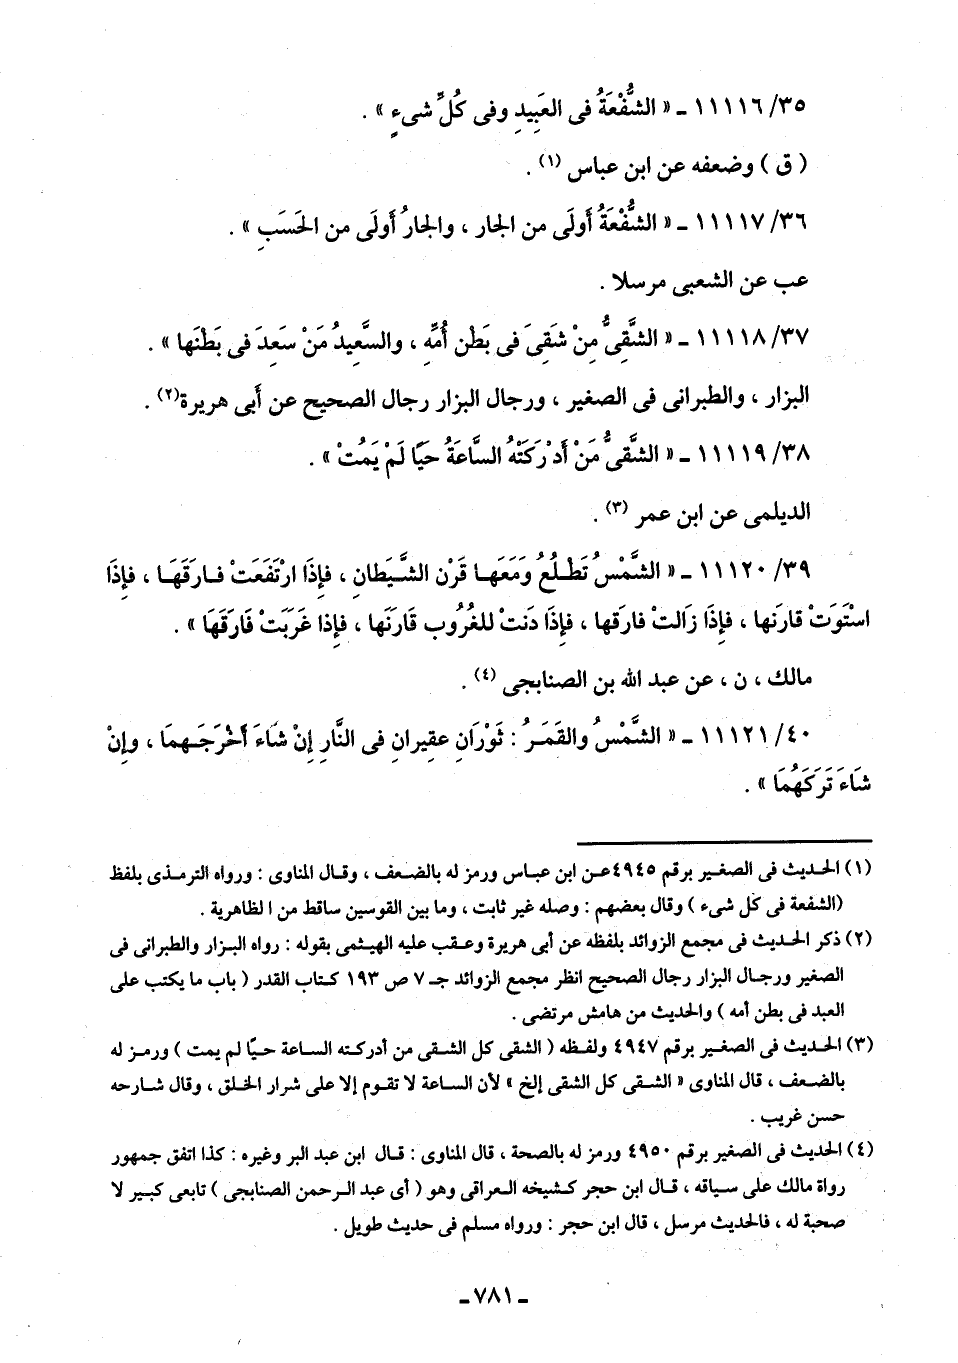 ١١١١٦/٣٥ ـ « الشُّفْعَةُ فى العَبِيدِ وفى كُلِّ شىءٍ » .
( ق ) وضعفه عن ابن عباس (١) .
١١١١٧/٣٦ ـ « الشُّفْعَةُ أَولَى من الجار ، والجارُ أَولَى من الحَسَبِ » .
عب عن الشعبى مرسلا .
١١١١٨/٣٧ ـ « الشَّقِىُّ مِنْ شَقِىَ فى بَطْنِ أُمِّهِ ، والسَّعِيدُ مَنْ سَعِدَ فى بَطْنَها » .
البزار ، والطبرانى فى الصغير ، ورجال البزار رجال الصحيح عن أبى هريرة(٢) .
١١١١٩/٣٨ ـ « الشَّقىُّ مَنْ أدْرَكَتْهُ السَّاعَةُ حَيًا لَمْ يَمُتْ » .
الديلمى عن ابن عمر (٣) .
١١١٢٠/٣٩ ـ « الشَّمْسُ تَطْلُعُ وَمَعَها قَرْن الشَّيَطانِ ، فإِذَا ارْتَفَعَتْ فارَقَهَا ، فإِذَا
اسْتَوَتْ قارَنَها ، فإِذَا زَالتْ فارقَها ، فإِذَا دَنتْ للغُرُوبِ قَارَنَها ، فإذا غَرَبَتْ فَارَقَهَا » .
مالك ، ن ، عن عبد الله بن الصنابجى (٤) .
١١١٢١/٤٠ ـ « الشَّمْسُ والقَمَرُ : ثَوْرَانِ عقيرانِ فى النَّارِ إنْ شَاءَ أَخْرَجَهمَا ، وإِنْ
شَاءَ تَرَكَهُمَا » .
(١) الحديث فى الصغير برقم ٤٩٤٥ عن ابن عباس ورمز له بالضعف ، وقال المناوى : ورواه الترمذى بلفظ
(الشفعة فى كل شىء ) وقال بعضهم : وصله غير ثابت ، وما بين القوسين ساقط من الظاهرية .
(٢) ذكر الحديث فى مجمع الزوائد بلفظه عن أبى هريرة وعقب عليه الهيثمى بقوله : رواه البزار والطبرانى فى
الصغير ورجال البزار رجال الصحيح انظر مجمع الزوائد جـ ٧ ص ١٩٣ كتاب القدر ( باب ما يكتب على
العبد فى بطن أمه ) والحديث من هامش مرتضى .
(٣) الحديث فى الصغير برقم ٤٩٤٧ ولفظه ( الشقى كل الشقى من أدركته الساعة حيًا لم يمت ) ورمز له
بالضعف ، قال المناوى « الشقى كل الشقى إلخ » لأن الساعة لا تقوم إلا على شرار الخلق ، وقال شارحه
حسن غريب .
(٤) الحديث فى الصغير برقم ٤٩٥٠ ورمز له بالصحة ، قال المناوى : قال ابن عبد البر وغيره : كذا اتفق جمهور
رواة مالك على سياقه ، قال ابن حجر كشيخه العراقى وهو ( أى عبد الرحمن الصنابجى ) تابعى كبير لا
صحبة له ، فالحديث مرسل ، قال ابن حجر : ورواه مسلم فى حديث طويل .
ـ ٧٨١ ـ